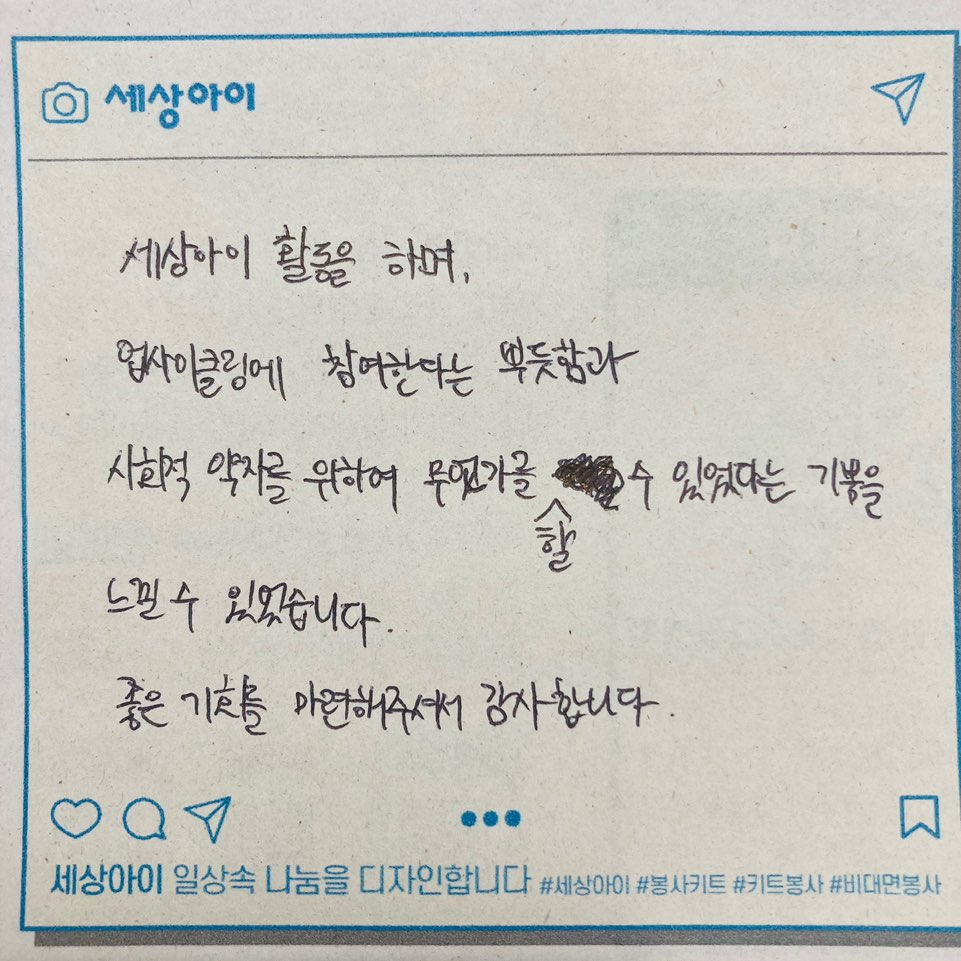 세상아이
세상아이 활동을 하며,
업사이클링에 참여한다는 뿌듯함과
사회적 약자를 위하여 무언가를 할 수 있었다는 기쁨을
느낄 수 있었습니다.
좋은 기회를 마련해주셔서 감사합니다.
세상아이 일상속 나눔을 디자인합니다 #세상아이 #봉사키트 #키트봉사 #비대면봉사